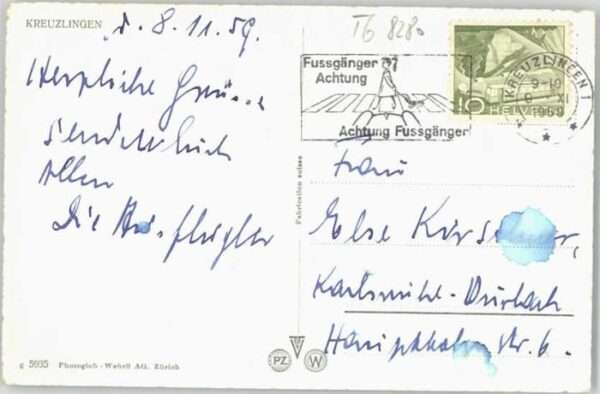 KREUZLINGEN
d. 8.11.59.
T6 8280
Fussgänger
Achtung
Achtung Fussgänger
10 HELVETIA
KREUZLINGEN 1
9-10
XI
1959
Herzliche Grüsse
sendet Euch
allen
Die Ausflügler
Fabrication suisse
Frau
Else
Karlsruhe-Durlach
Str. 6.
PZ W
g 5935 Photoglob-Wehrli AG. Zürich